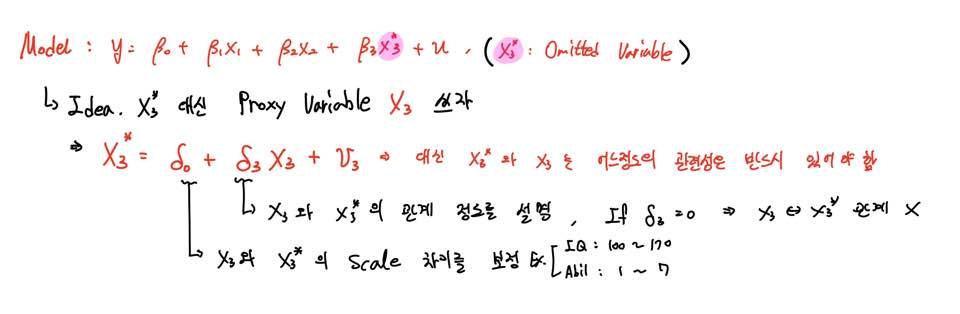 Model : y = β₀ + β₁x₁ + β₂x₂ + β₃x₃* + u , ( x₃* : Omitted Variable )
↳ Idea. x₃* 대신 Proxy Variable x₃ 쓰자
⇒ x₃* = δ₀ + δ₃ x₃ + v₃ ⇒ 대신 x₃* 와 x₃ 는 어느정도의 관련성은 반드시 있어야 함
↳ x₃ 와 x₃* 의 관계 정도를 설명 , If δ₃ = 0 ⇒ x₃ ⇔ x₃* 관계 X
↳ x₃와 x₃* 의 Scale 차이를 보정 Ex. [ IQ : 100 ~ 170
Abil : 1 ~ 7